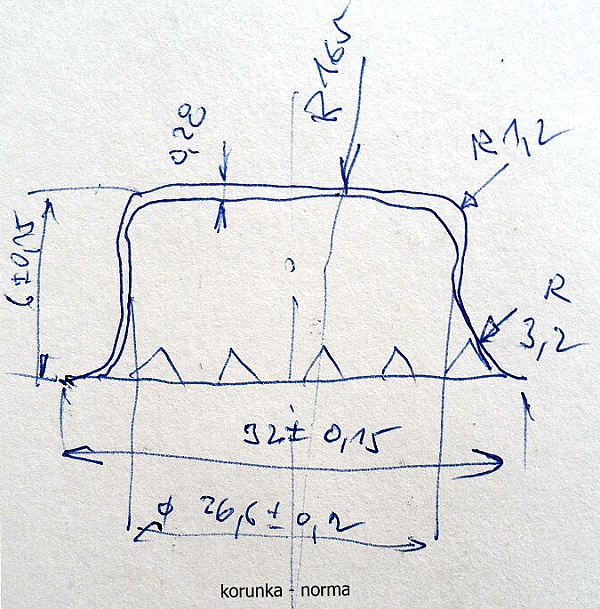 R 165
0,28
R 1,2
6±0,15
R
3,2
32± 0,15
ϕ 26,6± 0,2
korunka - norma